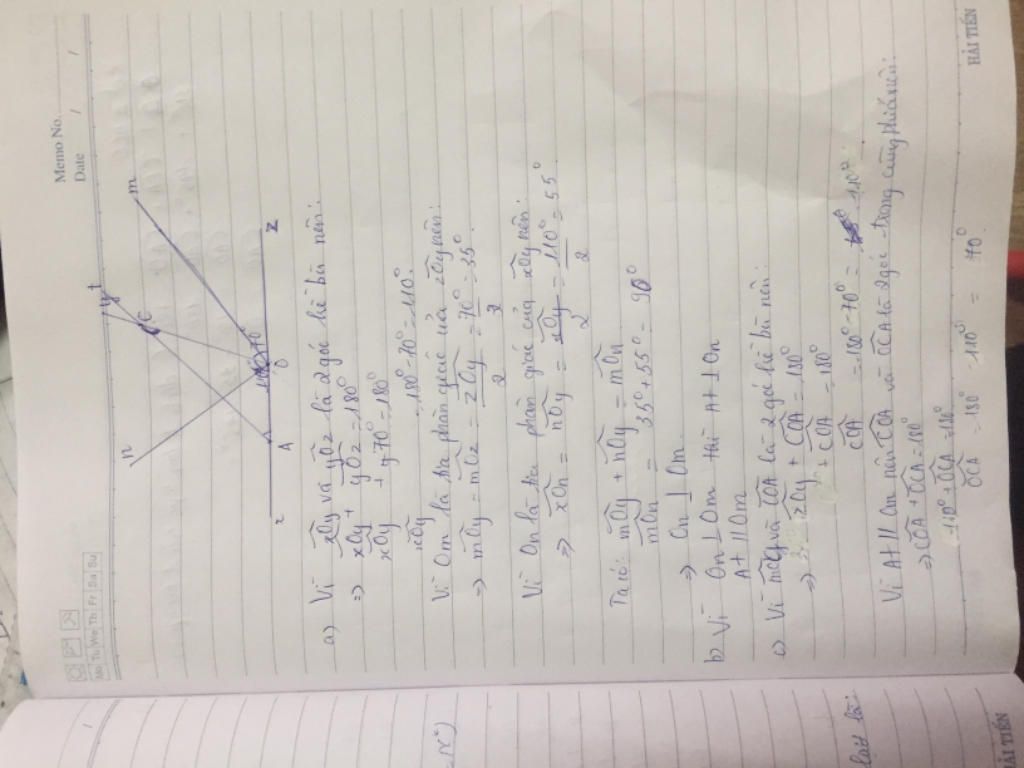 Memo No.
Date / /
Mo Tu We Th Fr Sa Su
n
t
y
m
C
70°
x
A
O
z
a) Vì xOy và yOz là 2 góc kề bù nên:
=> xOy + yOz = 180°
xOy + 70° = 180°
xOy = 180° - 70° = 110°
Vì Om là tia phân giác của zOy nên:
=> mOy = mOz = zOy/2 = 70°/2 = 35°
Vì On là tia phân giác của xOy nên:
=> xOn = nOy = xOy/2 = 110°/2 = 55°
Ta có: mOy + nOy = mOn
mOn = 35° + 55° = 90°
=> On ⊥ Om
b) Vì On ⊥ Om thì At ⊥ On
At // Om
c) Vì và COA là 2 góc kề bù nên:
=> zOy + COA = 180°
+ COA = 180°
COA = 180° - 70° = 110°
Vì At // Om nên COA và OCA là 2 góc trong cùng phía nên:
=> COA + OCA = 180°
110° + OCA = 180°
OCA = 180° - 110° = 70°
HẢI TIẾN
HẢI TIẾN